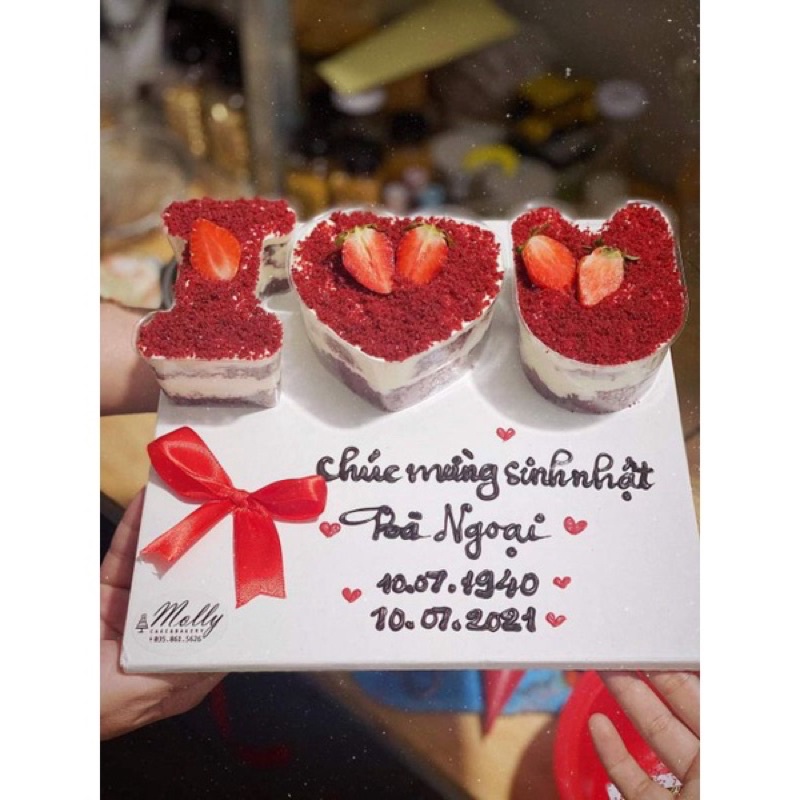 I ♥ U
chúc mừng sinh nhật
Bà Ngoại
10.07.1940
10.07.2021
Molly
CAKE&BAKERY
035.861.5626